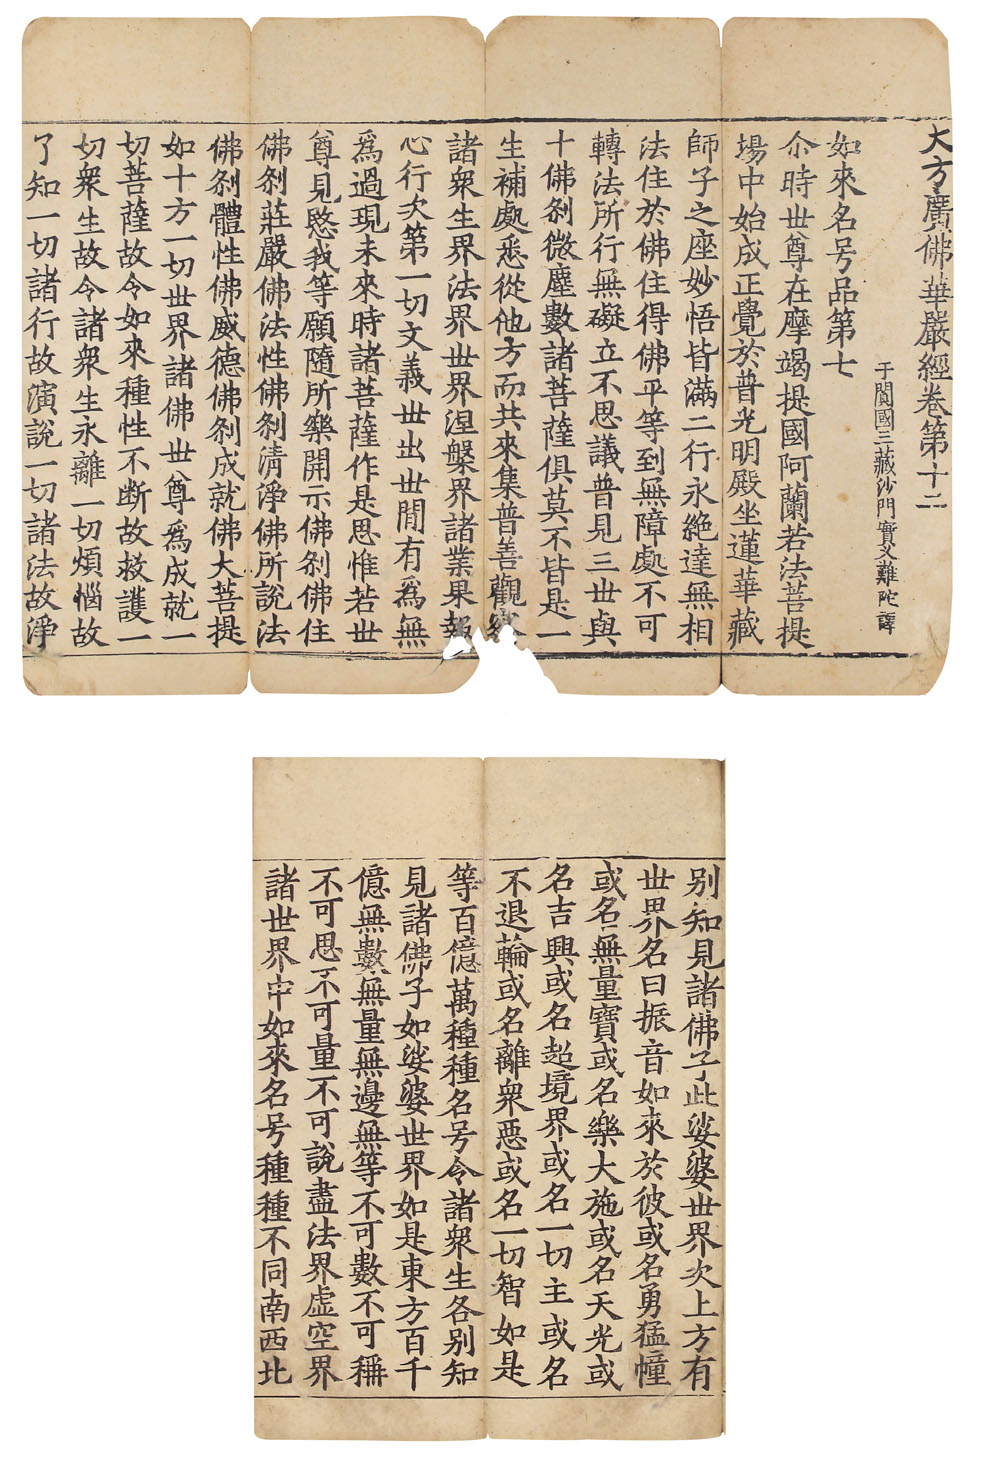 大方廣佛華嚴經卷第十二
于闐國三藏沙門實叉難陀譯
如來名号品第七
尒時世尊在摩竭提國阿蘭若法菩提
場中始成正覺於普光明殿坐蓮華藏
師子之座妙悟皆滿二行永絶達無相
法住於佛住得佛平等到無障處不可
轉法所行無礙立不思議普見三世與
十佛刹微塵數諸菩薩俱莫不皆是一
生補處悉從他方而共來集普善觀
諸衆生界法界世界涅槃界諸業果報
心行次第一切文義世出世閒有爲無
爲過現未來時諸菩薩作是思惟若世
尊見愍我等願隨所樂開示佛刹佛住
佛刹莊嚴佛法性佛刹清淨佛所說法
佛刹體性佛威德佛刹成就佛大菩提
如十方一切世界諸佛世尊爲成就一
切菩薩故令如來種性不断故救護一
切衆生故令諸衆生永離一切煩惱故
了知一切諸行故演說一切諸法故淨
別知見諸佛子此娑婆世界次上方有
世界名曰振音如來於彼或名勇猛幢
或名無量寶或名樂大施或名天光或
名吉興或名超境界或名一切主或名
不退輪或名離衆惡或名一切智如是
等百億萬種種名号令諸衆生各別知
見諸佛子如娑婆世界如是東方百千
億無數無量無邊無等不可數不可稱
不可思不可量不可說盡法界虛空界
諸世界中如來名号種種不同南西北